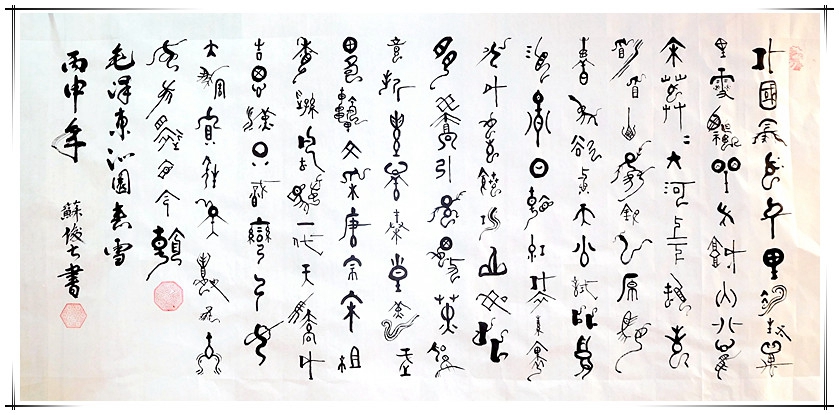 北國風光千里冰封萬
里雪飄望長城內外惟
余莽〻大河上下頓失
滔滔山舞銀蛇原馳
蠟象欲與天公試比高
須晴日看紅裝素裹
分外妖嬈江山如此
多嬌引無數英雄
競折腰惜秦皇漢武
略輸文采唐宗宋祖
稍遜風騷一代天驕成
吉思汗只識彎弓射
大雕俱往矣數風流
人物還看今朝
毛澤東沁園春雪
丙申年
蘇俊士書